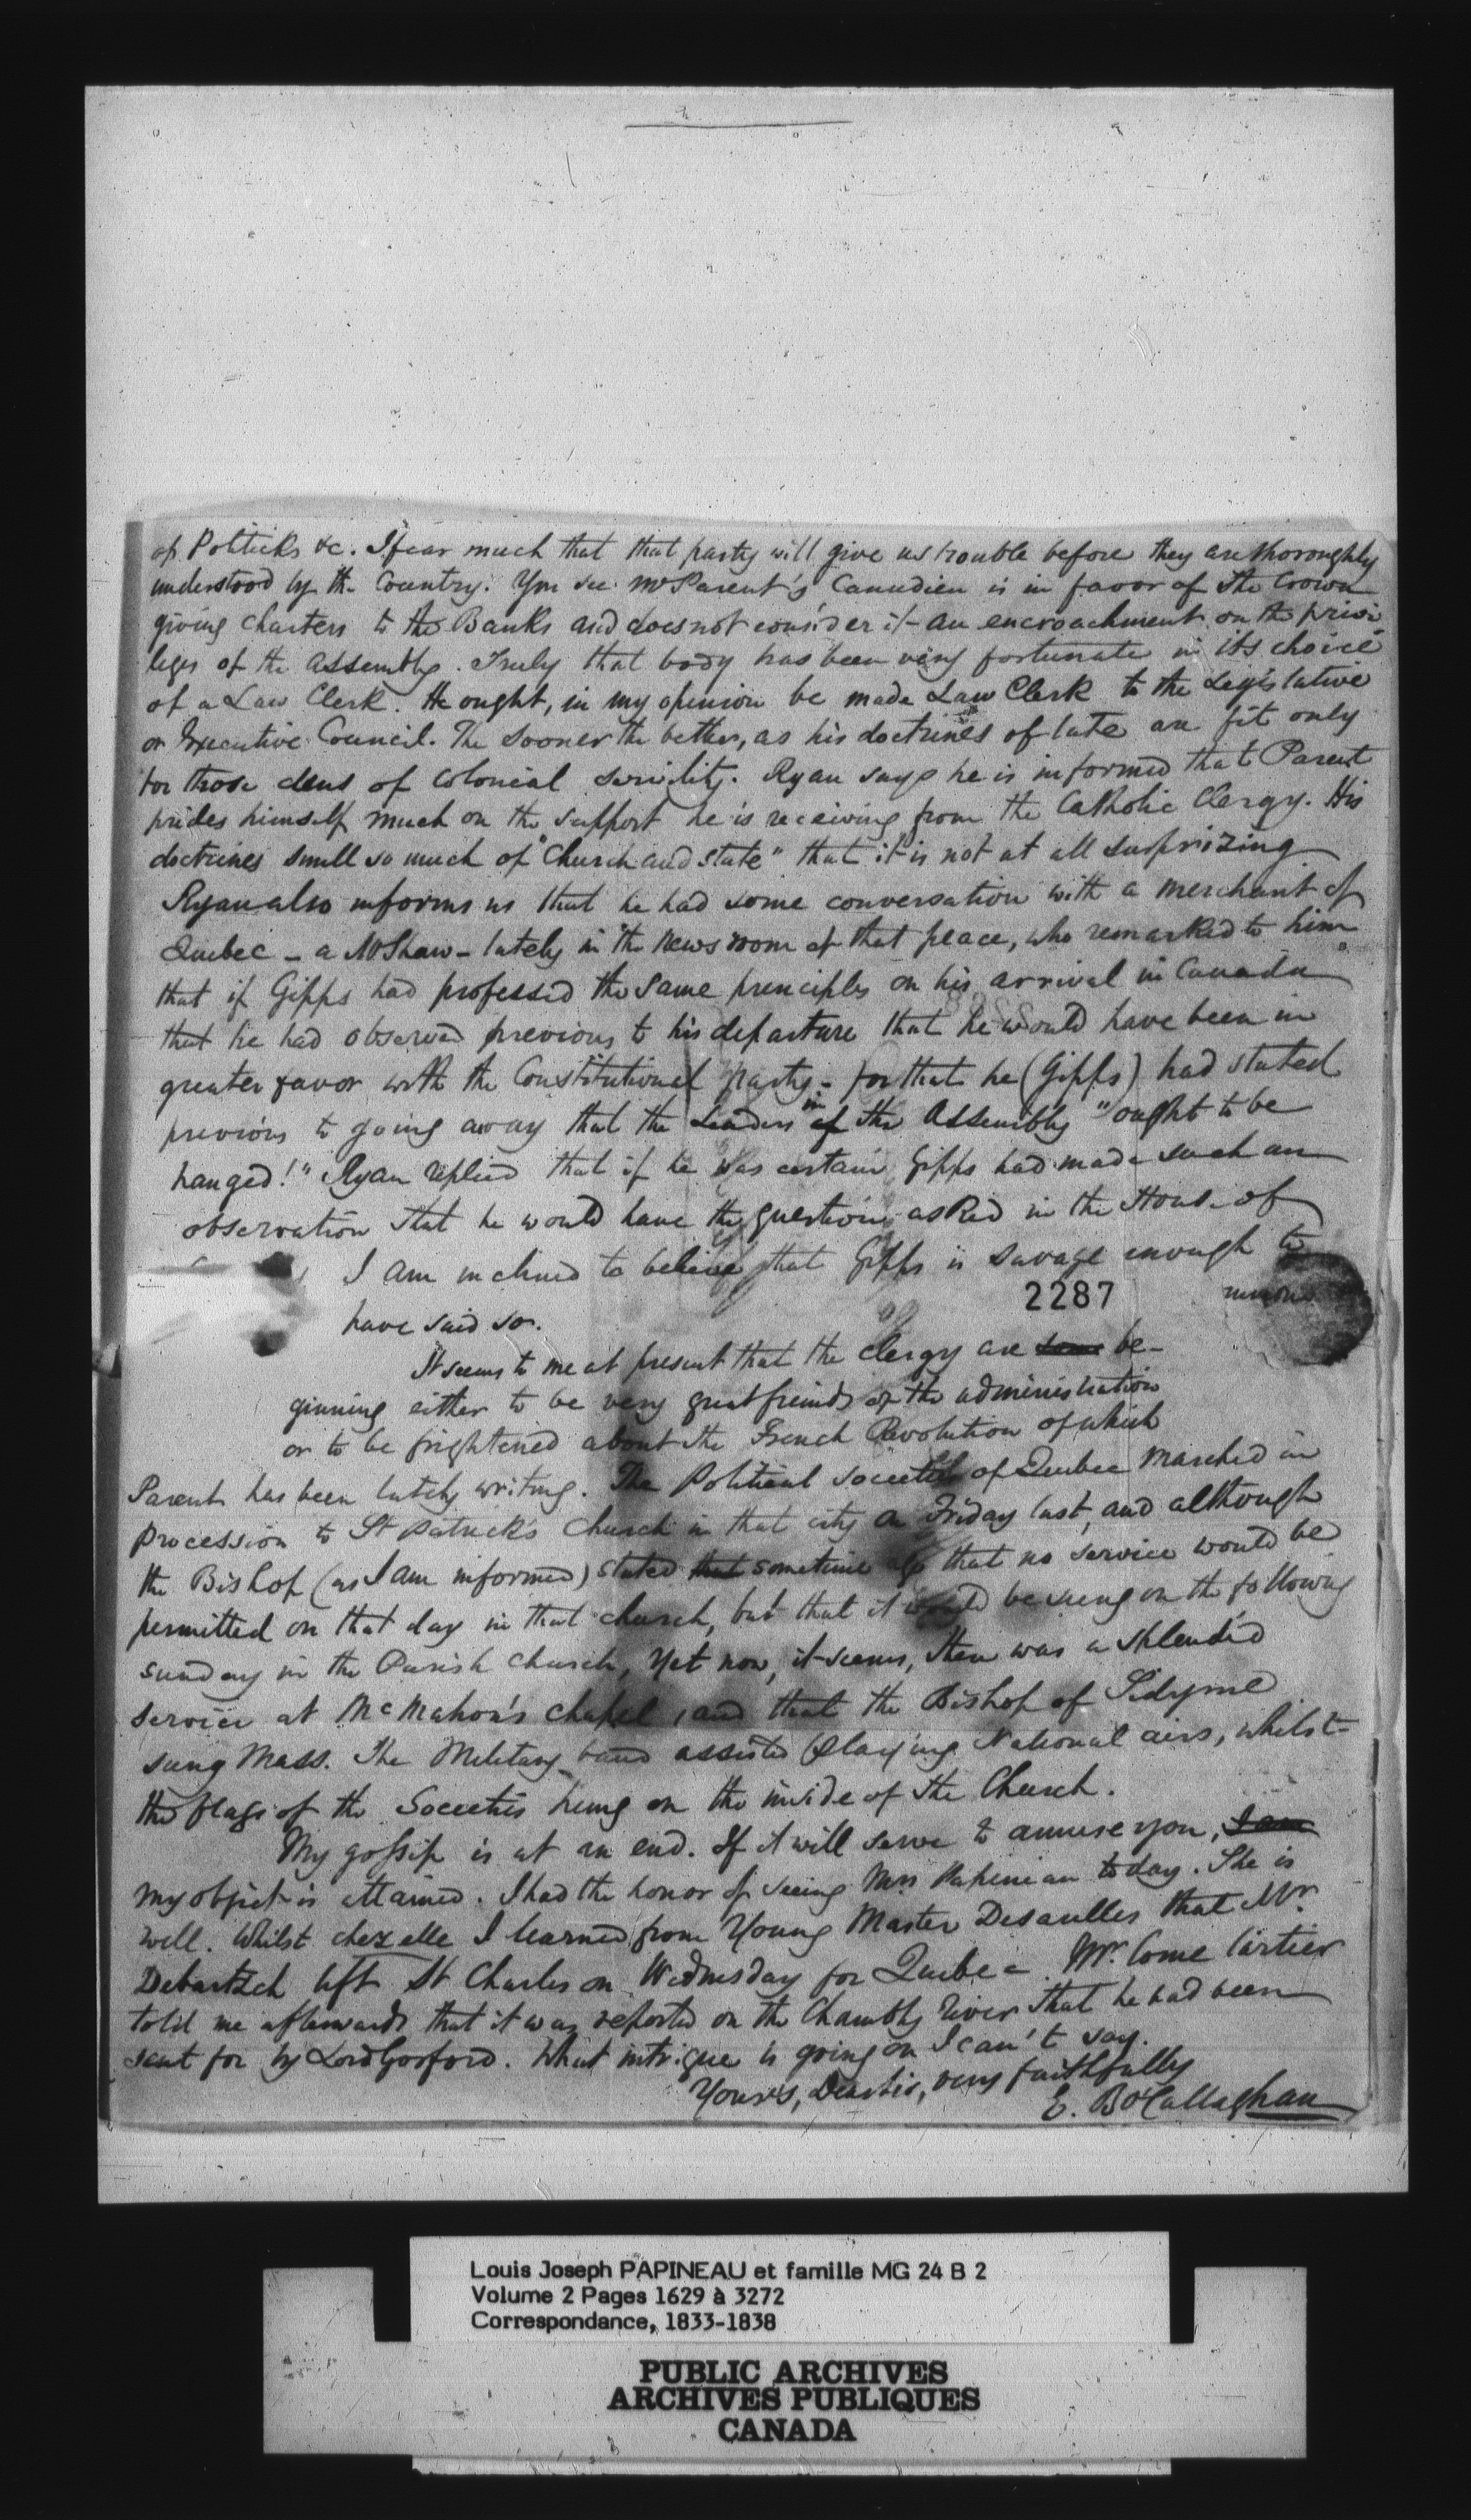 of Politicks &c. I fear much that that party will give us trouble before they are thoroughly
understood by the Country. You see Mr Parent's Canadien is in favor of the Crown
giving charters to the Banks and does not consider it an encroachment on the privi
leges of the Assembly. Truly that body has been very fortunate in its choice
of a Law Clerk. He ought, in my opinion be made Law Clerk to the Legislative
or Executive Council. The sooner the better, as his doctrines of late are fit only
for those dens of Colonial servility. Ryan says he is informed that Parent
prides himself much on the support he is receiving from the Catholic Clergy. His
doctrines smell so much of "Church and State" that it is not at all surprizing
Ryan also informs us that he had some conversation with a merchant of
Quebec - a Mr Shaw - lately in the News room of that place, who remarked to him
that if Gipps had professed the same principles on his arrival in Canada
that he had observed previous to his departure that he would have been in
greater favor with the Constitutional Party - for that he (Gipps) had stated
previous to going away that the Leaders in of the Assembly "ought to be
hanged!" Ryan replied that if he was certain Gipps had made such an
observation that he would have the question asked in the House of
I am inclined to believe that Gipps is savage enough to
2287
have said so.
It seems to me at present that the clergy are some be-
ginning either to be very great friends of the administration
or to be frightened about the French Revolution of which
Parent has been lately writing. The Political Societies of Quebec marched in
procession to St Patrick's Church in that city on Friday last, and although
the Bishop (as I am informed) stated that sometime ago that no service would be
permitted on that day in that church, but that it would be sung on the following
sunday in the Parish Church, Yet now, it seems, there was a splendid
service at McMahon's Chapel, and that the Bishop of Sidyme
sung Mass. The Military band assisted playing National airs, whilst
the flags of the Societies hung on the inside of the Church.
My gossip is at an end. If it will serve to amuse you, I am
my object is attained. I had the honor of seeing Mrs Papineau today. She is
well. Whilst chez elle I learned from Young Master Desaulles that Mr.
Debartzch left St Charles on Wednesday for Quebec. Mr. Come Cartier
told me afterwards that it was reported on the Chambly River that he had been
sent for by Lord Gosford. What intrigue is going on I can't say.
Yours, Dear Sir, very faithfully
E. B O'Callaghan
Louis Joseph PAPINEAU et famille MG 24 B 2
Volume 2 Pages 1629 à 3272
Correspondance, 1833-1838
PUBLIC ARCHIVES
ARCHIVES PUBLIQUES
CANADA